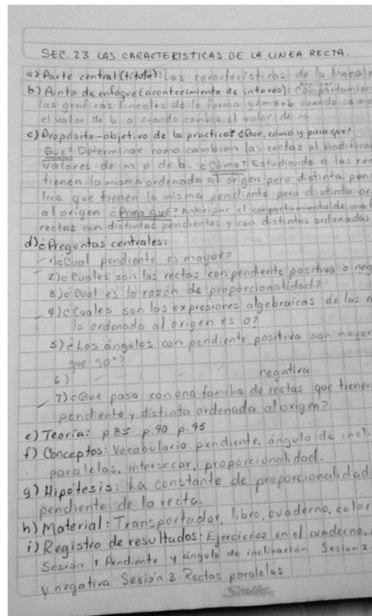 SEC. 23 LAS CARACTERISTICAS DE LA LINEA RECTA.
a) Parte central (titulo): Las caracteristicas de la linea
b) Punto de enfoque (acontecimiento de interes): Comportamien
las graficas lineales de la forma y=mx+b cuando
el valor de b o cuando cambia el valor de m
c) Proposito-objetivo de la practica? ¿Que, cómo y para que?
Que? Determinar como cambian las rectas al modificar
valores de m o de b. ¿Cómo? Estudiando a las rec
tienen la misma ordenada al origen pero distinta pen
las que tienen la misma pendiente pero distinta or
al origen ¿Para que? Anticipar el comportamiento de una
rectas con distintas pendientes y con distintas ordenadas
d) ¿Preguntas centrales:
1) ¿Cual pendiente es mayor?
2) ¿Cuales son las rectas con pendiente positiva o neg
3) ¿Cual es la razón de proporcionalidad?
4) ¿Cuales son las expresiones algebraicas de las r
la ordenada al origen es 0?
5) ¿Los ángulos con pendiente positiva son mayor
que 90°?
6) negativa
7) ¿Que pasa con una familia de rectas que tienen
pendiente y distinta ordenada al origen?
e) Teoría: p 85 p. 90 p. 95
f) Conceptos: Vocabulario pendiente, ángulo de incl.
paralelas, intersecar, proporcionalidad.
g) Hipotesis: La constante de proporcionalidad
pendiente de la recta.
h) Material: Transportador, libro, cuaderno, color
i) Registro de resultados: Ejercicios en el cuaderno.
Sesión 1 Pendiente y ángulo de inclinación Sesion 2
y negativa Sesión 3 Rectas paralelas